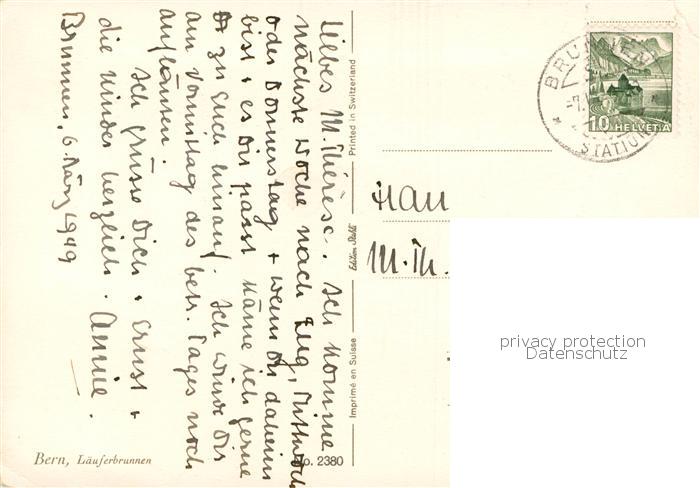 Liebes M. Thérèse. Ich komme
nächste Woche nach Zug, Mittwoch
oder Donnerstag + wenn Du daheim
bist + es Dir passt käme ich gerne
zu Euch hinauf. Ich würde Dir
am Vormittag des betr. Tages noch
anläuten.
Ich grüsse Dich + Ernst +
die Kinder herzlich. Annie.
Brunnen, 6. März 1949
Bern, Läuferbrunnen
No. 2380
Imprimé en Suisse
Edition Stehli
Printed in Switzerland
Frau
M. Th.
BRUNNEN
-7.
STATION
10 HELVETIA
privacy protection
Datenschutz